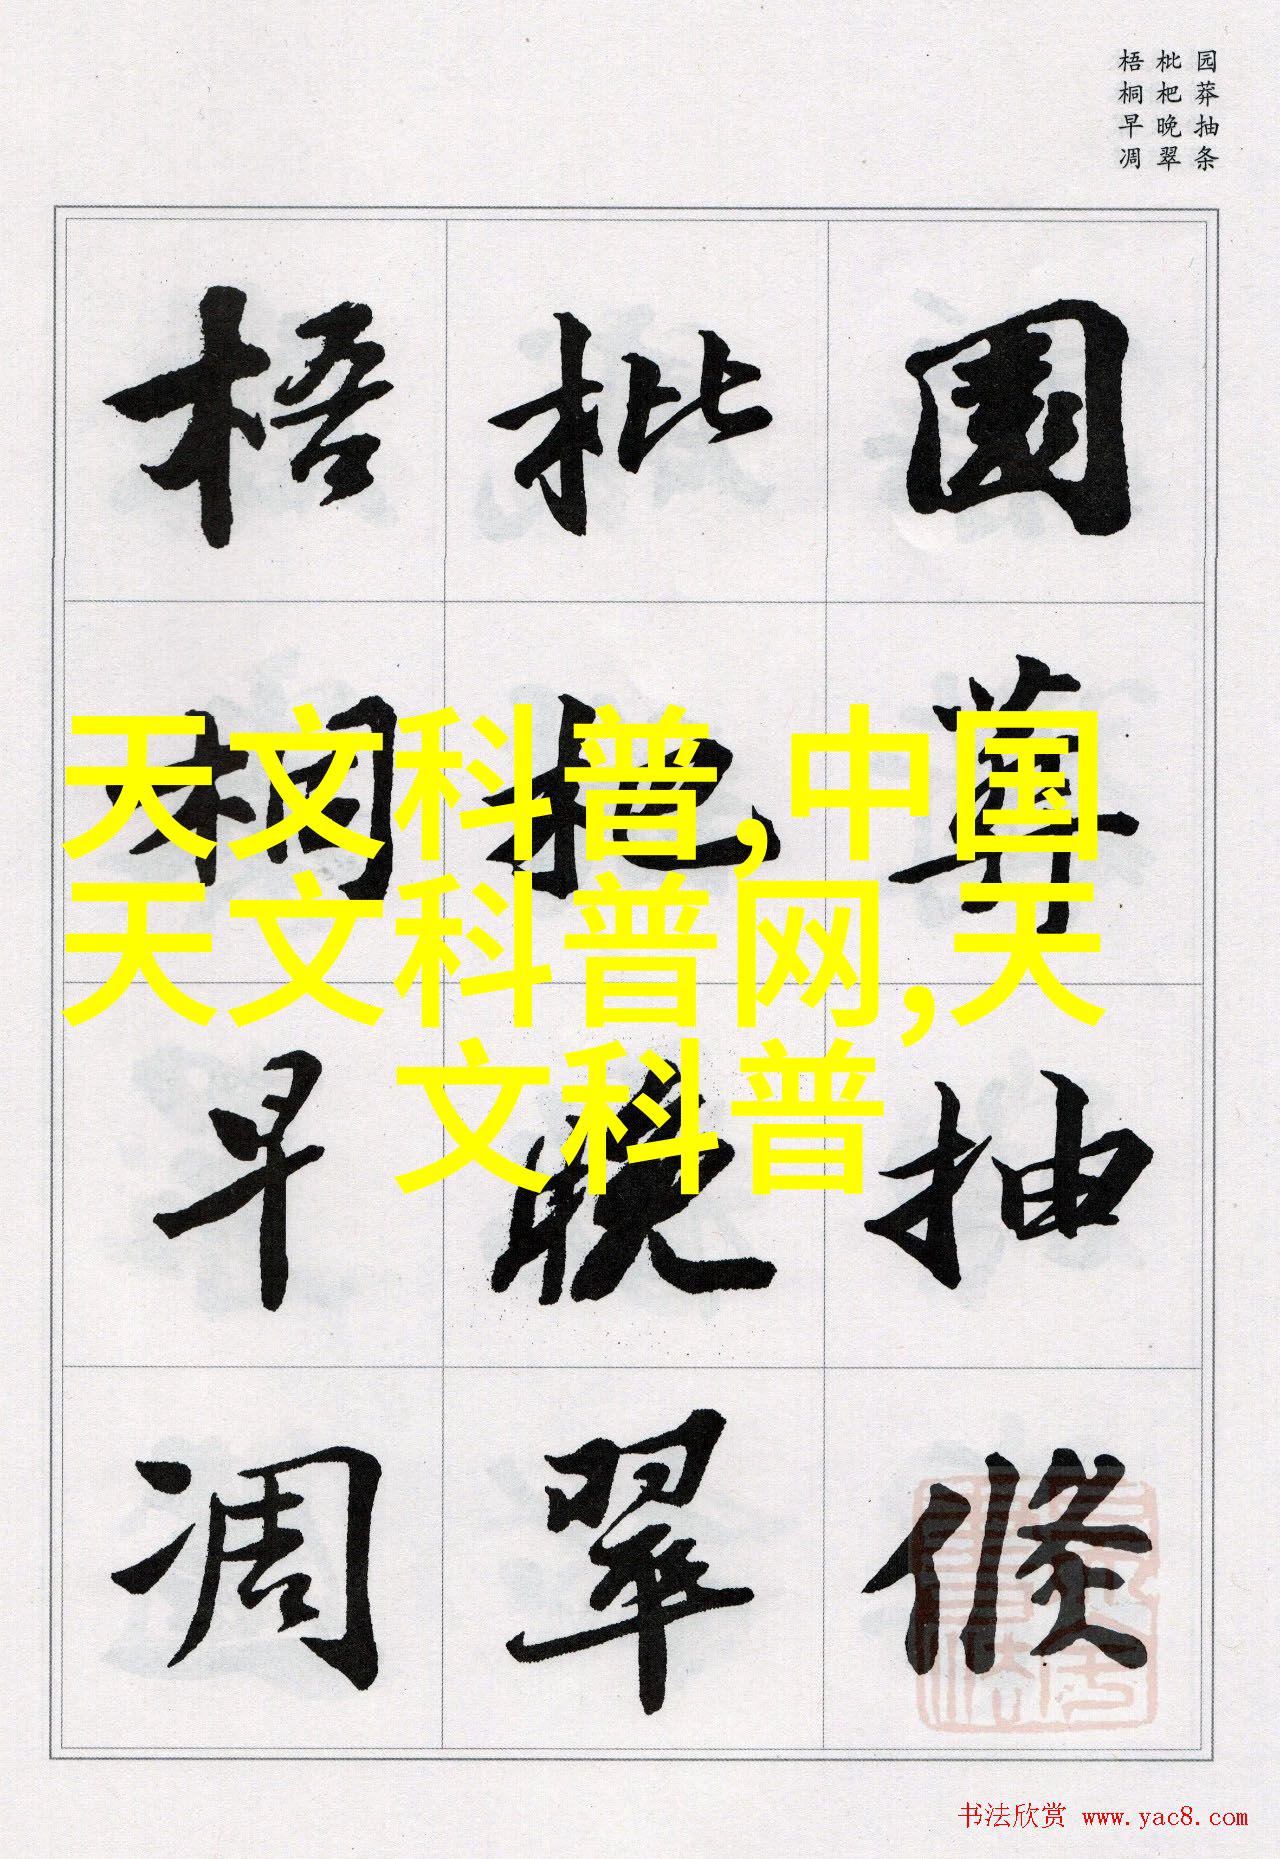 园莽抽条
枇杷晚翠
梧桐早凋
園莽抽條
枇杷晚翠
梧桐早凋
天文科普,中国
天文科普网,天
文科普
书法欣赏 www.yac8.com